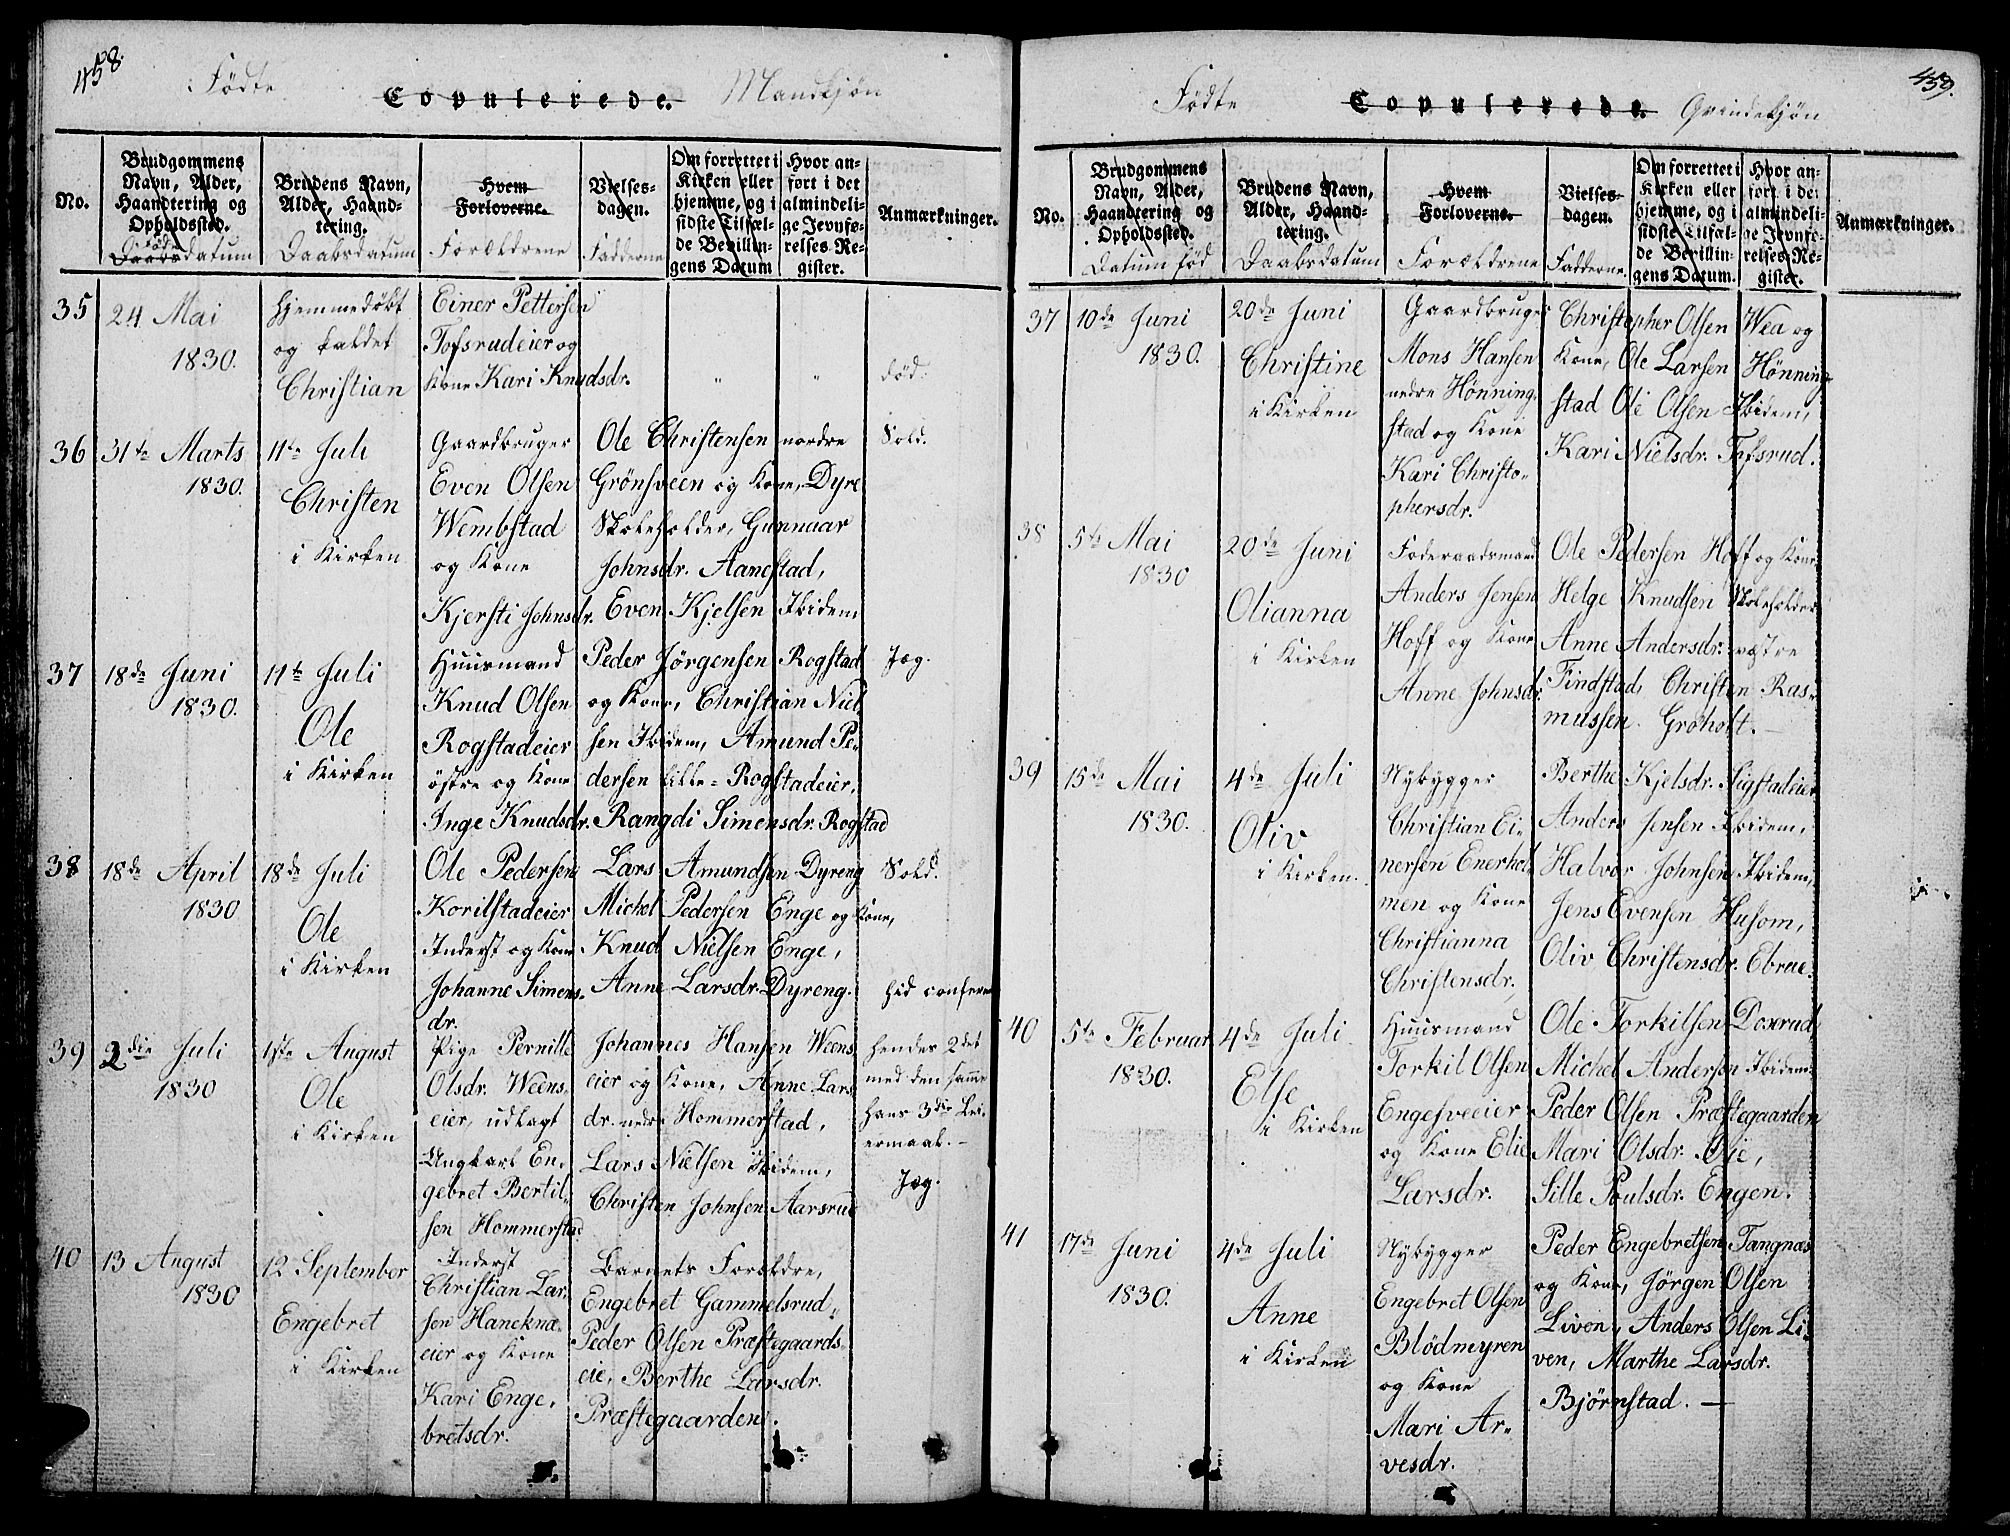 458.
Födte Copulerede. Mandkjøn
No.
Brudgommens
Navn, Alder,
Haandtering og
Opholdssted.
Daabsdatum
Brudens Navn,
Alder, Haand-
tering.
Daabsdatum
Hvem
Forloverne.
Forældrene
Vielses-
dagen.
Fadderne
Om forrettet i
Kirken eller
hjemme, og i
sidste Tilfæl-
de Bevillin-
gens Datum
Hvor an-
ført i det
almindeli-
ge Jevnfø-
relses-Re-
gister.
Anmærkninger.
35
24 Mai
1830.
hjemmedøbt
og kaldet
Christian
Einer Pettersen
Tofsrudeier og
Kone Kari Knudsdr.
død.
36
31te Marts
1830.
11te Juli
Christen
i Kirken
Gaardbruger
Even Olsen
Wembstad
og Kone
Kjersti Johnsdr.
Ole Christensen nordre
Grönsveen og Kone, Dyre
Skoleholder, Gunnaar
Johnsdr. Aanestad,
Even Kjelsen Ibidem
Sold.
37
18de Juni
1830.
11te Juli
Ole
i Kirken
Huusmand
Knud Olsen
Rogstadeier
østre og Kone
Inge Knudsdr.
Peder Jørgensen Rogstad
og Kone, Christian Niel
sen Ibidem, Amund Pe-
dersen lille-Rogstadeier,
Rangdi Simensdr. Rogstad
Jæg.
38
18de April
1830
18de Juli
Ole
i Kirken
Ole Pedersen
Korilstadeier
Inderst og Kone
Johanne Simens-
dr.
Lars Amundsen Dyreng
Michel Pedersen Enge og Kone,
Knud Nielsen Enge,
Anne Larsdr. Dyreng.
Sold.
39
2die Juli
1830
1ste August
Ole
i Kirken
Pige Pernille
Olsdr. Weens-
eier, udlagt
Ungkarl En-
gebret Bertil-
sen Hommerstad
Johannes Hansen Weens
eier og Kone, Anne Lars
dr. nedre Hommerstad,
Lars Nielsen Ibidem,
Christen Johnsen Aarsrud
hendes 2det
med den samme
hans 3die Lei-
ermaal.-
Jæg.
40
13 August
1830
12 September
Engebret
i Kirken
Inderst
Christian Lar-
sen Haneknæ-
eier og Kone
Kari Enge-
bretsdr.
Barnets Forældre,
Engebret Gammelsrud
Peder Olsen Præstegaards-
eie, Berthe Larsdr.
Præstegaarden.
459.
Födte Copulerede. Qvindekjøn
No.
Brudgommens
Navn, Alder,
Haandtering og
Opholdssted.
Datum fød
Brudens Navn,
Alder, Haand-
tering.
Daabsdatum
Hvem
Forloverne.
Forældrene
Vielses-
dagen.
Fadderne.
Om forrettet i
Kirken eller
hjemme, og i
sidste Tilfæl-
de Bevillin-
gens Datum.
Hvor an-
ført i det
almindeli-
ge Jevnfø-
relses-Re-
gister.
Anmærkninger.
37
10de Juni
1830.
20de Juni
Christine
i Kirken
Gaardbruger
Mons Hansen
nedre Hönning-
stad og Kone
Kari Christo-
phersdr.
Christopher Olsen Wea og
Kone, Ole Larsen Hönning
stad Ole Olsen Ibidem,
Kari Nielsdr. Tofsrud.
38
5te Mai
1830
20de Juni
Olianna
i Kirken
Foderaadsmand
Anders Jensen
Hoff og Kone
Anne Johnsdr.
Ole Pedersen Hoff og Kone
Helge Knudsen Skoleholder
Anne Andersdr. vestre
Findstad, Christen Ras-
mussen Groholt.-
39
15de Mai
1830.
4de Juli
Oliv
i Kirken.
Nybygger
Christian Ei-
nersen Enerhol-
men og Kone
Christianna
Christensdr.
Berthe Kjelsdr. Sigstadeier
Anders Jensen Ibidem,
Halvor Johnsen Ibidem,
Jens Evensen Husom,
Oliv Christensdr. Ebrue.
40
5te Februar
1830.
4de Juli
Else
i Kirken
Huusmand
Torkil Olsen
Engesveeier
og Kone Elie
Larsdr.
Ole Torkilsen Doxrud,
Michel Andersen Ibidem
Peder Olsen Præstegaarden
Mari Olsdr. Øie,
Sille Poulsdr. Engen.
41
17de Juni
1830.
4de Juli
Anne
i Kirken
Nybygger
Engebret Olsen
Blödmyren
og Kone
Mari Ar-
vesdr.
Peder Engebretsen Tangnæs
og Kone, Jørgen Olsen
Liven, Anders Olsen Li-
ven, Marthe Larsdr.
Björnstad.-